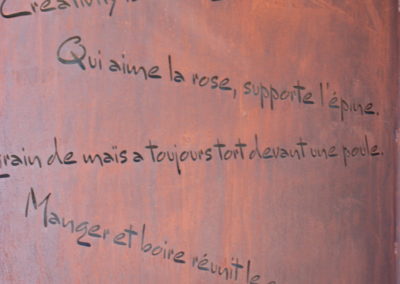 Creativity
Qui aime la rose, supporte l'épine.
grain de maïs a toujours tort devant une poule.
Manger et boire réunit le